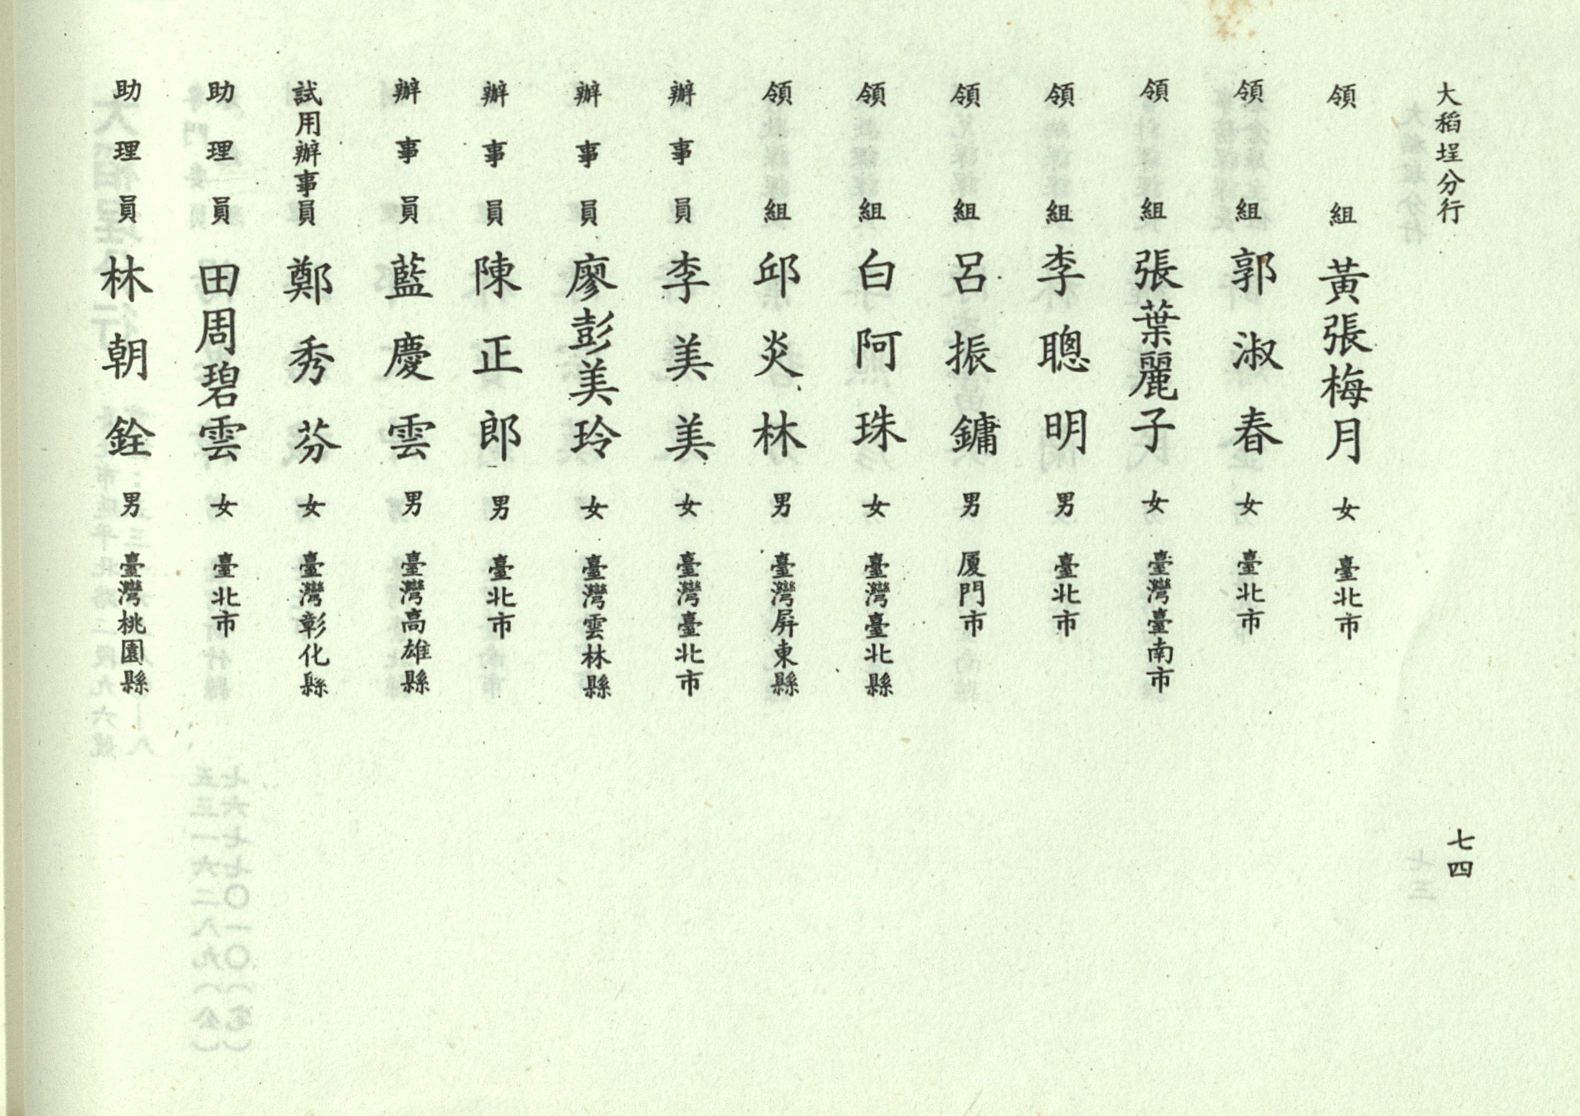 大稻埕分行
七四
領組 黃張梅月 女 臺北市
領組 郭淑春 女 臺北市
領組 張葉麗子 女 臺灣臺南市
領組 李聰明 男 臺北市
領組 呂振鏞 男 厦門市
領組 白阿珠 女 臺灣臺北縣
領組 邱炎林 男 臺灣屏東縣
辦事員 李美美 女 臺灣臺北市
辦事員 廖彭美玲 女 臺灣雲林縣
辦事員 陳正郎 男 臺北市
辦事員 藍慶雲 男 臺灣高雄縣
試用辦事員 鄭秀芬 女 臺灣彰化縣
助理員 田周碧雲 女 臺北市
助理員 林朝銓 男 臺灣桃園縣